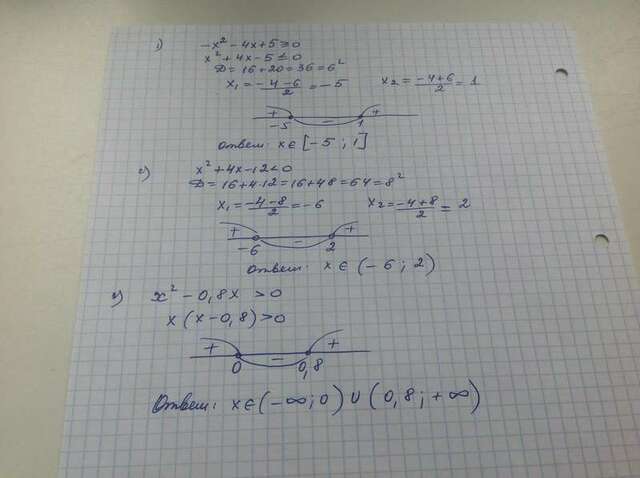 1) -x² - 4x + 5 ≥ 0
x² + 4x - 5 ≤ 0
D = 16 + 20 = 36 = 6²
x₁ = (-4-6)/2 = -5   x₂ = (-4+6)/2 = 1
+ - +
-5 1
ответ: x ∈ [-5 ; 1]
x² + 4x - 12 < 0
D = 16 + 4·12 = 16 + 48 = 64 = 8²
x₁ = (-4-8)/2 = -6   x₂ = (-4+8)/2 = 2
+ - +
-6 2
ответ: x ∈ (-6 ; 2)
x² - 0,8x > 0
x (x - 0,8) > 0
+ - +
0 0,8
Ответ: x ∈ (-∞ ; 0) ∪ (0,8 ; +∞)